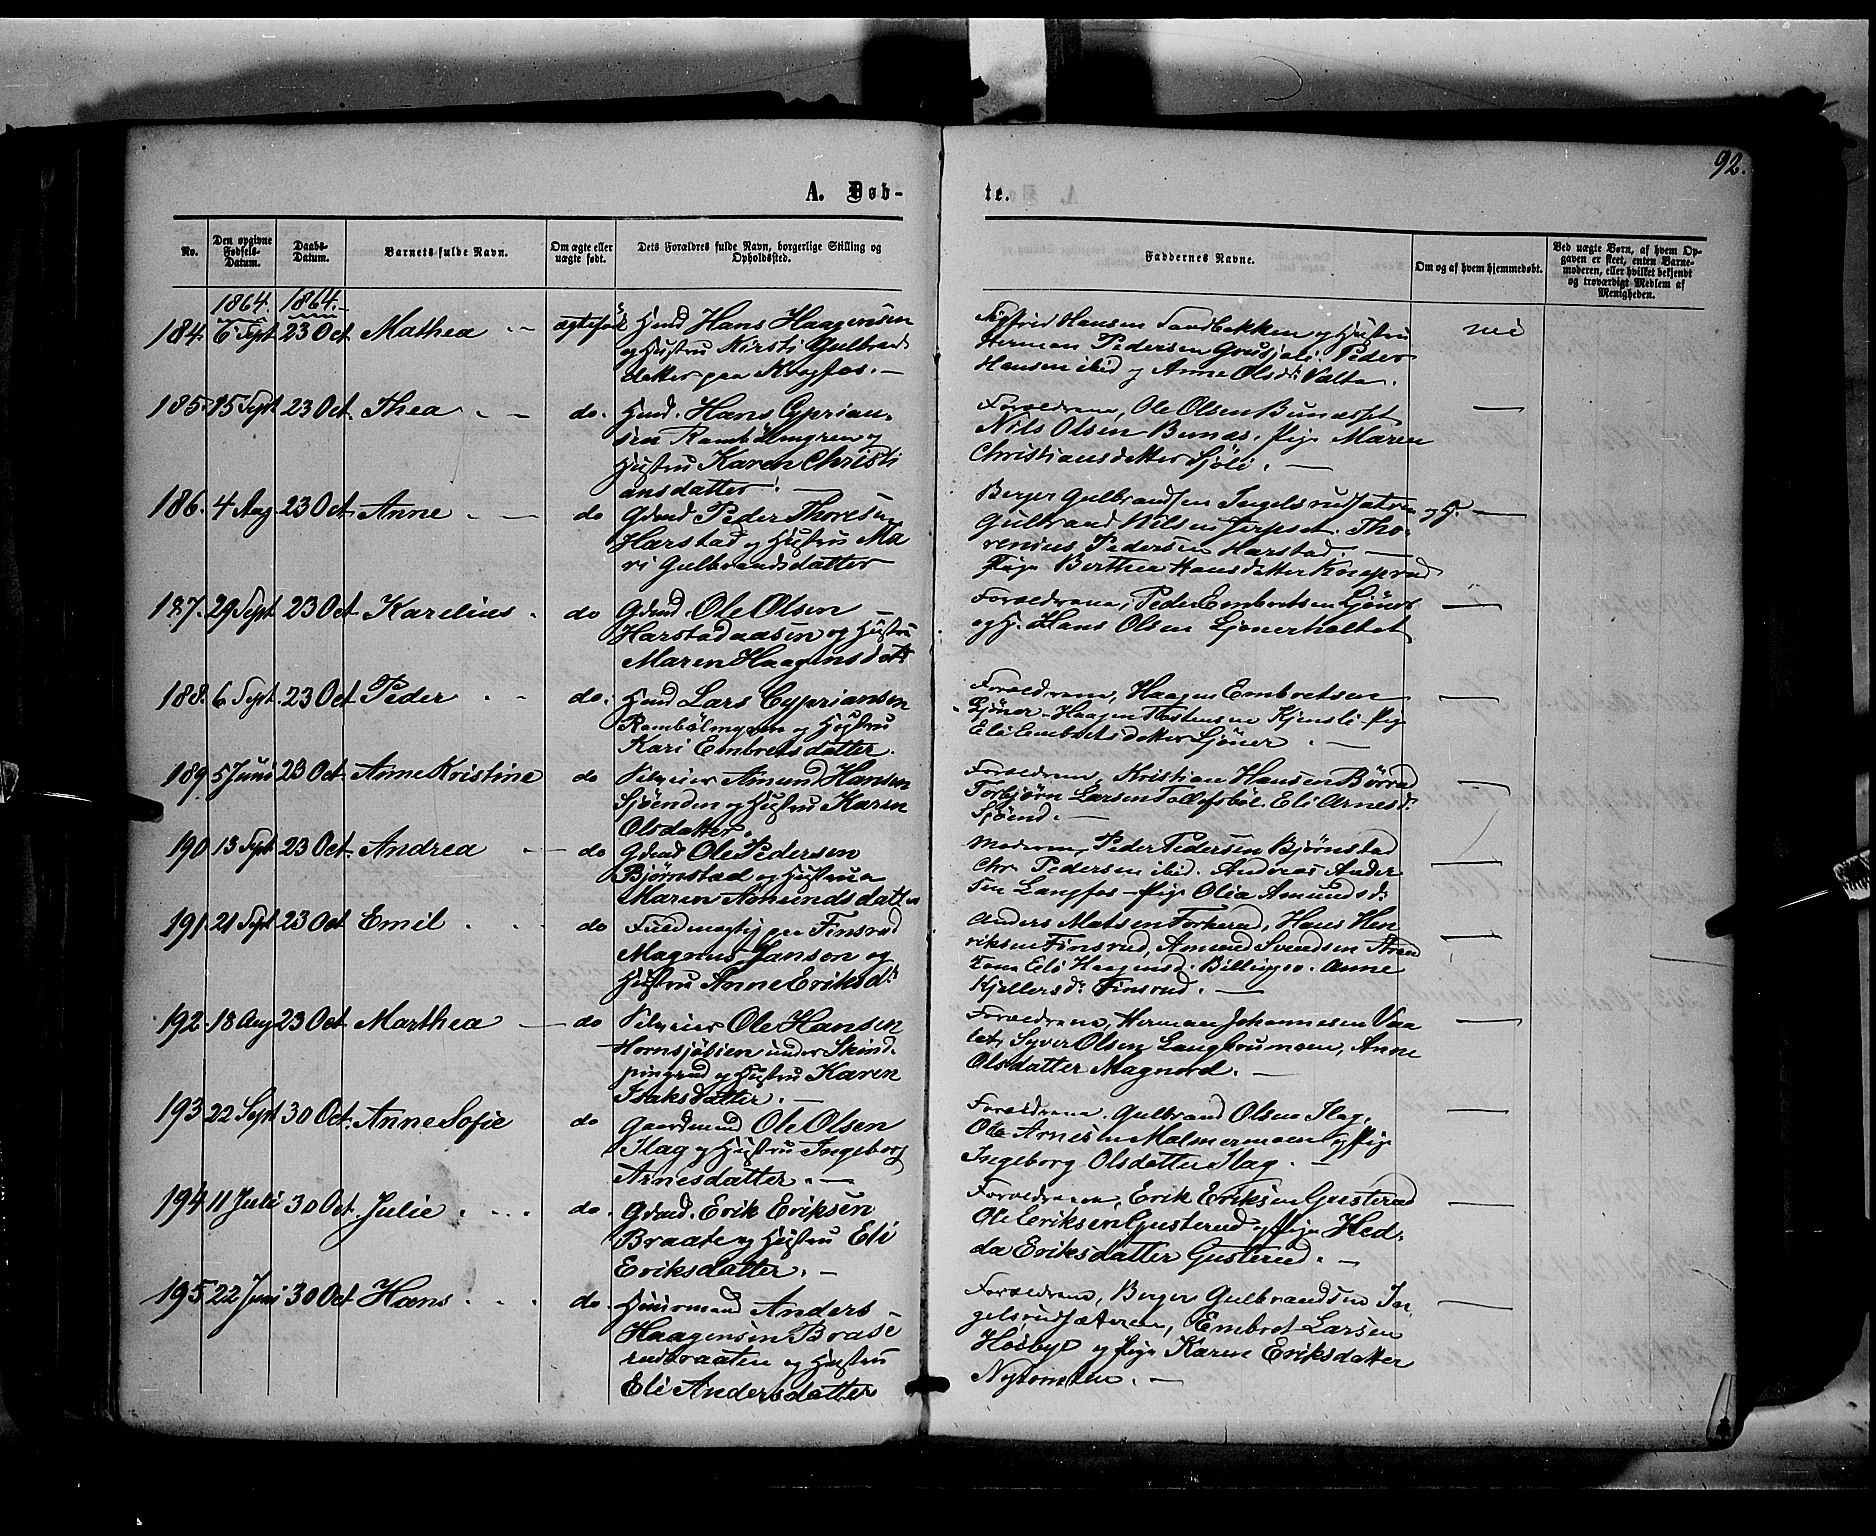 92.
A. Døb-
te.
No.
Den opgivne Fødsels-Datum.
Daabs-Datum.
Barnets fulde Navn.
Om ægte eller uægte født.
Dets Forældres fulde Navn, borgerlige Stilling og Opholdssted.
Faddernes Navne.
Om og af hvem hjemmedøbt.
Ved uægte Børn, af hvem Opgaven er skeet, enten Barnemoderen, eller hvilket bekjendt og troværdigt Medlem af Menigheden.
1864. 1864.
184. 6 Sept 23 Oct. Mathea ægtefød Hmd Hans Haagensen
og Hustru Kirsti Gulbrands
datter paa Kragfos.
Sigfrid Hansen Sandbekken og Hustru
Herman Pedersen Peder
Hansen ibid og Anne Olsdr. Valta.
nei
185. 15 Sept 23 Oct. Thea do. Hmd. Hans Cyprian-
sen Rambölmyren og
Hustru Karen Christi
ansdatter.
Forældrene, Ole Olsen Bunæset
Nils Olsen Bunæs. Pige Maren
Christiansdatter Sjöli.
186. 4 Aug 23 Oct. Anne do Gdmd Peder Thoresen
Harstad og Hustru Ma
ri Gulbrandsdatter
Berger Gulbrandsen Ingelsrudsætren og H.
Gulbrand Nilsen Jerpset. Tho-
renius Pedersen Harstad.
Pige Berthea Hansdatter Knaprud
187. 29 Sept 23 Oct Karelius do Gdmd. Ole Olsen
Harstadaasen og Hustru
Maren Haagensdatt
Forældrene, Peder Embretsen Ljöner
og H. Hans Olsen Ljönerholtet
188. 6 Sept. 23 Oct Peder do. Hmd Lars Cypriansen
Rambölmyren og Hustru
Kari Embretsdatter.
Forældrene, Haagen Embretsen
Ljöner. Haagen Tostensen Kjensli Pige
Eli Embretsdatter Ljöner.
189. 5 Juni 23 Oct. Anne Kristine do Selveier Amund Hansen
Sjöenden og Hustru Karen
Olsdatter.
Forældrene, Kristian Hansen Börrud
Torbjörn Larsen Tollefsböl. Eli Arnesd.
Sjöend.
190 13 Sept 23 Oct. Andrea do Gdmd Ole Pedersen
Björnstad og Hustrue
Maren Amundsdatter
Moderen, Peder Pedersen Björnstad
Chr. Pedersen ibid. Andreas Ander
sen Langfos Pige Olea Amundsdr
191. 21 Sept 23 Oct Emil do Fuldmægtig paa Finsrud
Magnus Janson og
Hustru Anne Eriksdr.
Anders Matsen Forkerud, Hans Hen
riksen Finsrud, Amund Svendsen
Eli Haagensd. Billingso. Anne
Kjellersdr. Finsrud.
192. 18 Aug 23 Oct Marthea do Selveier Ole Hansen
Hornsjöbsien under Skind-
pungrud og Hustru Karen
Isaksdatter.
Forældrene, Herman Johannesen Vaa
let, Syver Olsen Langbrumoen, Anne
Olsdatter Magnord.
193 22 Sept 30 Oct. Anne Sofie do Gaardmand Ole Olsen
Slag og Hustru Ingeborg
Arnesdatter.
Forældrene. Gulbrand Olsen Slag,
Ole Arnesen Malmermoen og Pige
Ingeborg Olsdatter Slag.
194 11 Juli 30 Oct. Julie do. Gdmd. Erik Eriksen
Braate og Hustru Eli
Eriksdatter.
Forældrene, Erik Eriksen Gusterud
Ole Eriksen Gusterud og Pige Hed-
da Eriksdatter Gusterud.
195 22 Juni 30 Oct Hans do. Huusmand Anders
Haagensen Brase
rudbraaten og Hustru
Eli Andersdatter
Forældrene, Berger Gulbrandsen In
gelsrudsæteren, Embret Larsen
Høsbye og Pige Karen Eriksdatter